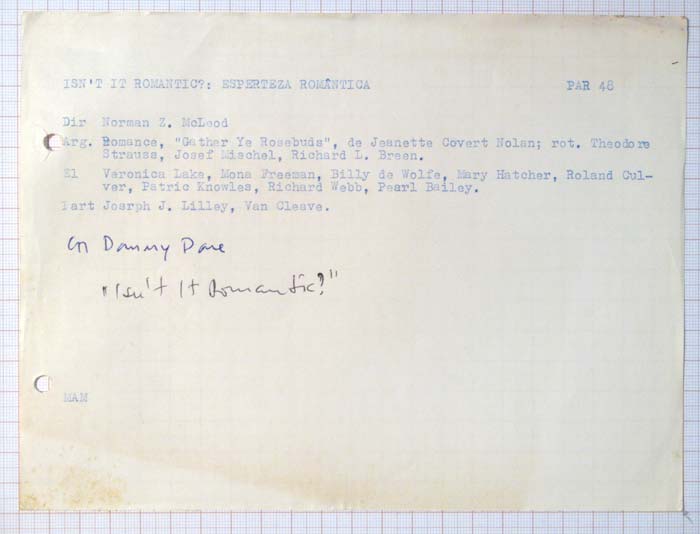 ISN'T IT ROMANTIC?: ESPERTEZA ROMÂNTICA PAR 48
Dir Norman Z. McLeod
Arg. Romance, "Gather Ye Rosebuds", de Jeanette Covert Nolan; rot. Theodore
Strauss, Josef Mischel, Richard L. Breen.
El Veronica Lake, Mona Freeman, Billy de Wolfe, Mary Hatcher, Roland Cul-
ver, Patric Knowles, Richard Webb, Pearl Bailey.
Part Josrph J. Lilley, Van Cleave.
Danny Dare
"Isn't It Romantic?"
MAM